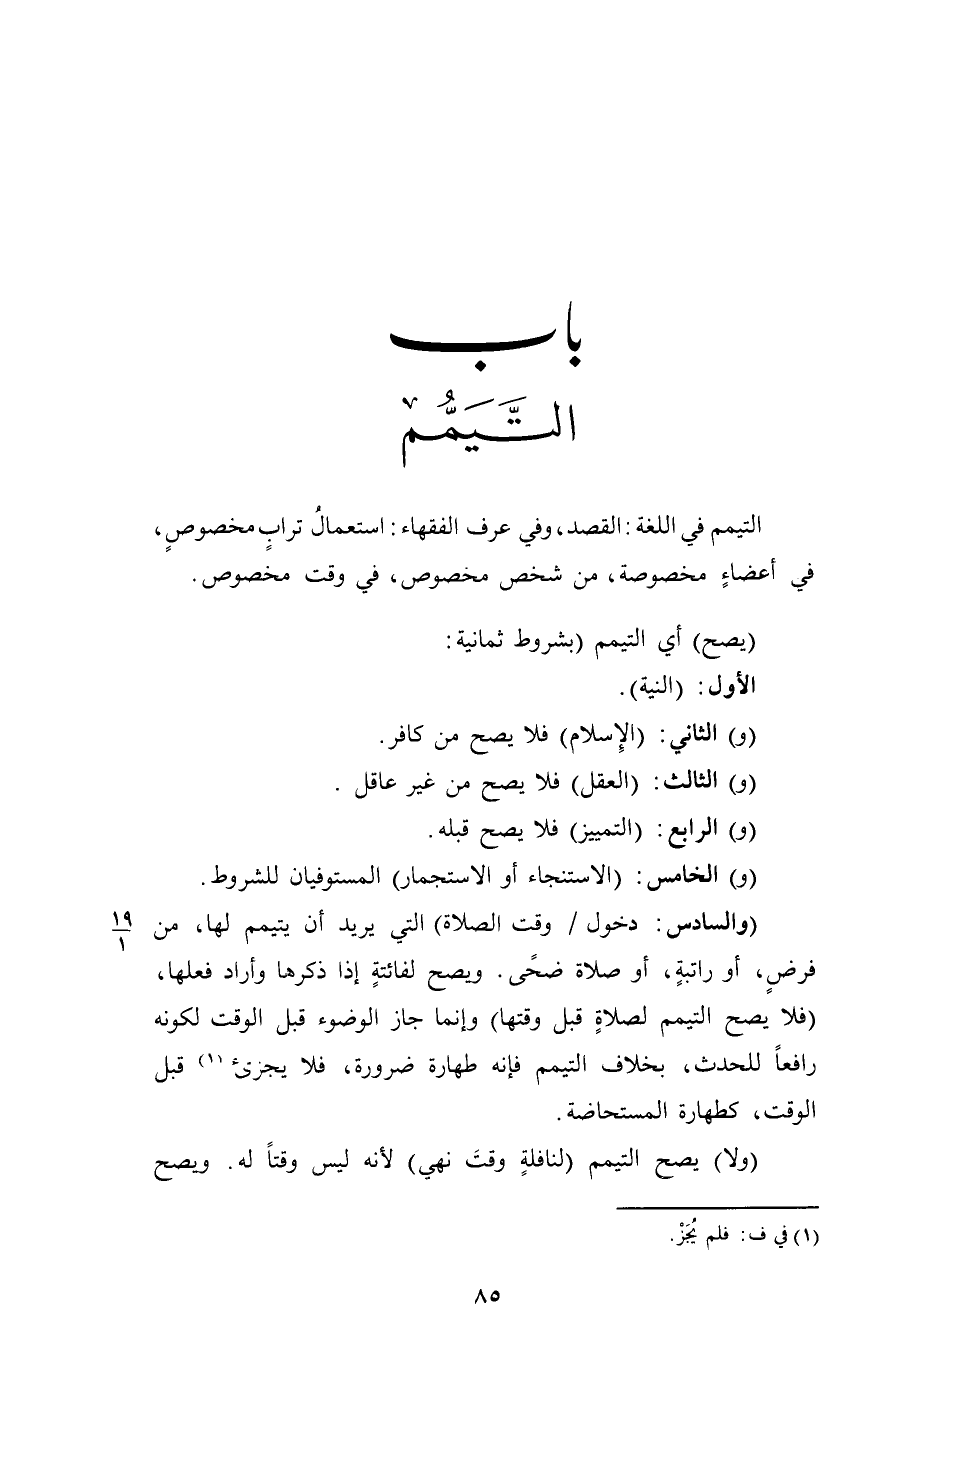 باب
التَّيَمُّم
التيمم في اللغة: القصد، وفي عرف الفقهاء: استعمالُ ترابٍ مخصوصٍ،
في أعضاءٍ مخصوصة، من شخص مخصوص، في وقت مخصوص.
(يصح) أي التيمم (بشروط ثمانية:
الأول: (النية).
(و) الثاني: (الإسلام) فلا يصح من كافر.
(و) الثالث: (العقل) فلا يصح من غير عاقل .
(و) الرابع: (التمييز) فلا يصح قبله.
(و) الخامس: (الاستنجاء أو الاستجمار) المستوفيان للشروط.
(والسادس: دخول / وقت الصلاة) التي يريد أن يتيمم لها، من
١٩
١
فرضٍ، أو راتبةٍ، أو صلاة ضحًى. ويصح لفائتةٍ إذا ذكرها وأراد فعلها،
(فلا يصح التيمم لصلاةٍ قبل وقتها) وإنما جاز الوضوء قبل الوقت لكونه
رافعاً للحدث، بخلاف التيمم فإنه طهارة ضرورة، فلا يجزئ(١) قبل
الوقت، كطهارة المستحاضة.
(ولا) يصح التيمم (لنافلةٍ وقتَ نهي) لأنه ليس وقتاً له. ويصح
(١) في ف: فلم يُجَزْ.
٨٥